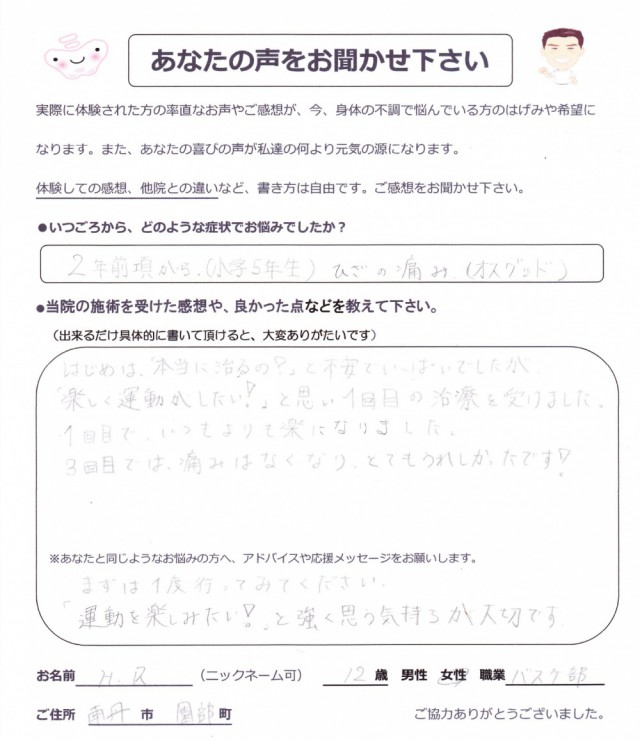 あなたの声をお聞かせ下さい
実際に体験された方の率直なお声やご感想が、今、身体の不調で悩んでいる方のはげみや希望に
なります。また、あなたの喜びの声が私達の何より元気の源になります。
体験しての感想、他院との違いなど、書き方は自由です。ご感想をお聞かせ下さい。
●いつごろから、どのような症状でお悩みでしたか？
2年前頃から.(小学5年生) ひざの痛み.(オスグッド)
●当院の施術を受けた感想や、良かった点などを教えて下さい。
（出来るだけ具体的に書いて頂けると、大変ありがたいです）
はじめは、「本当に治るの?」と不安でいっぱいでしたが、
「楽しく運動がしたい!」と思い1回目の治療を受けました。
1回目で、いつもよりも楽になりました。
3回目では、痛みはなくなり、とてもうれしかったです!
※あなたと同じようなお悩みの方へ、アドバイスや応援メッセージをお願いします。
まずは1度行ってみてください.
「運動を楽しみたい!」と強く思う気持ちが大切です.
お名前 H.R （ニックネーム可） 12 歳 男性 女性 職業 バスケ部
ご住所 南丹 市 園部 町 ご協力ありがとうございました。